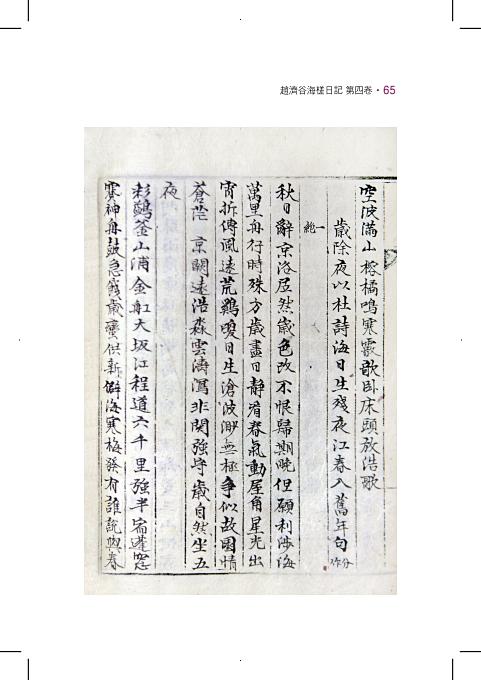 趙濟谷海槎日記 第四卷 · 65
空波滿山榕橘鳴寒霰歌卧床頭放浩歌
歲除夜以杜詩海日生殘夜江春入舊年句分作
秋日辭京洛居然歲色改不恨歸期晩但願利涉海
萬里舟行時殊方歲盡日靜看春氣動屋角星光出
宵柝傳風遠荒鷄喚日生滄波渺無極爭似故園情
蒼茫京關遠浩淼雲濤瀉非關強守歲自然坐五
夜
彩鷁釜山浦金舡大坂江程道六千里強半宿蓬窓
賽神舟鼓急餞歲蠻供新僻海寒梅發有誰說與春